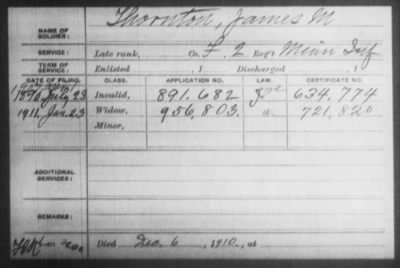 NAME OF SOLDIER: Thornton, James M
SERVICE: Late rank, Co. F, 2 Reg't Minn Inf
TERM OF SERVICE: Enlisted , 1 Discharged , 1
DATE OF FILING. CLASS. APPLICATION NO. LAW. CERTIFICATE NO.
1890 July 23 Invalid, 891.682 634.774
1911 Jan 23 Widow, 956,803. a. 721,820
Minor,
ADDITIONAL SERVICES:
REMARKS:
Died Dec. 6, 1910, at